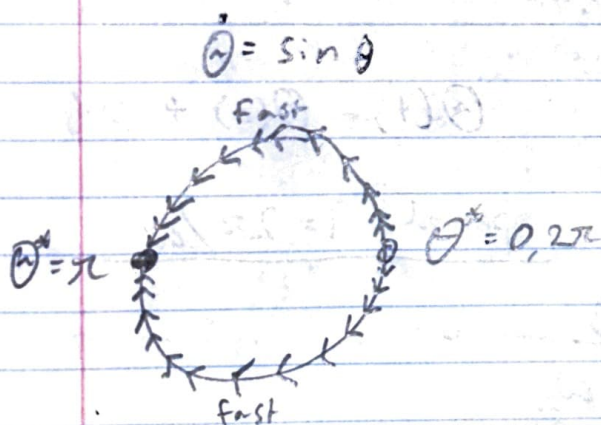 Θ̇ = sin θ
fast
Θ* = π
θ* = 0, 2π
fast